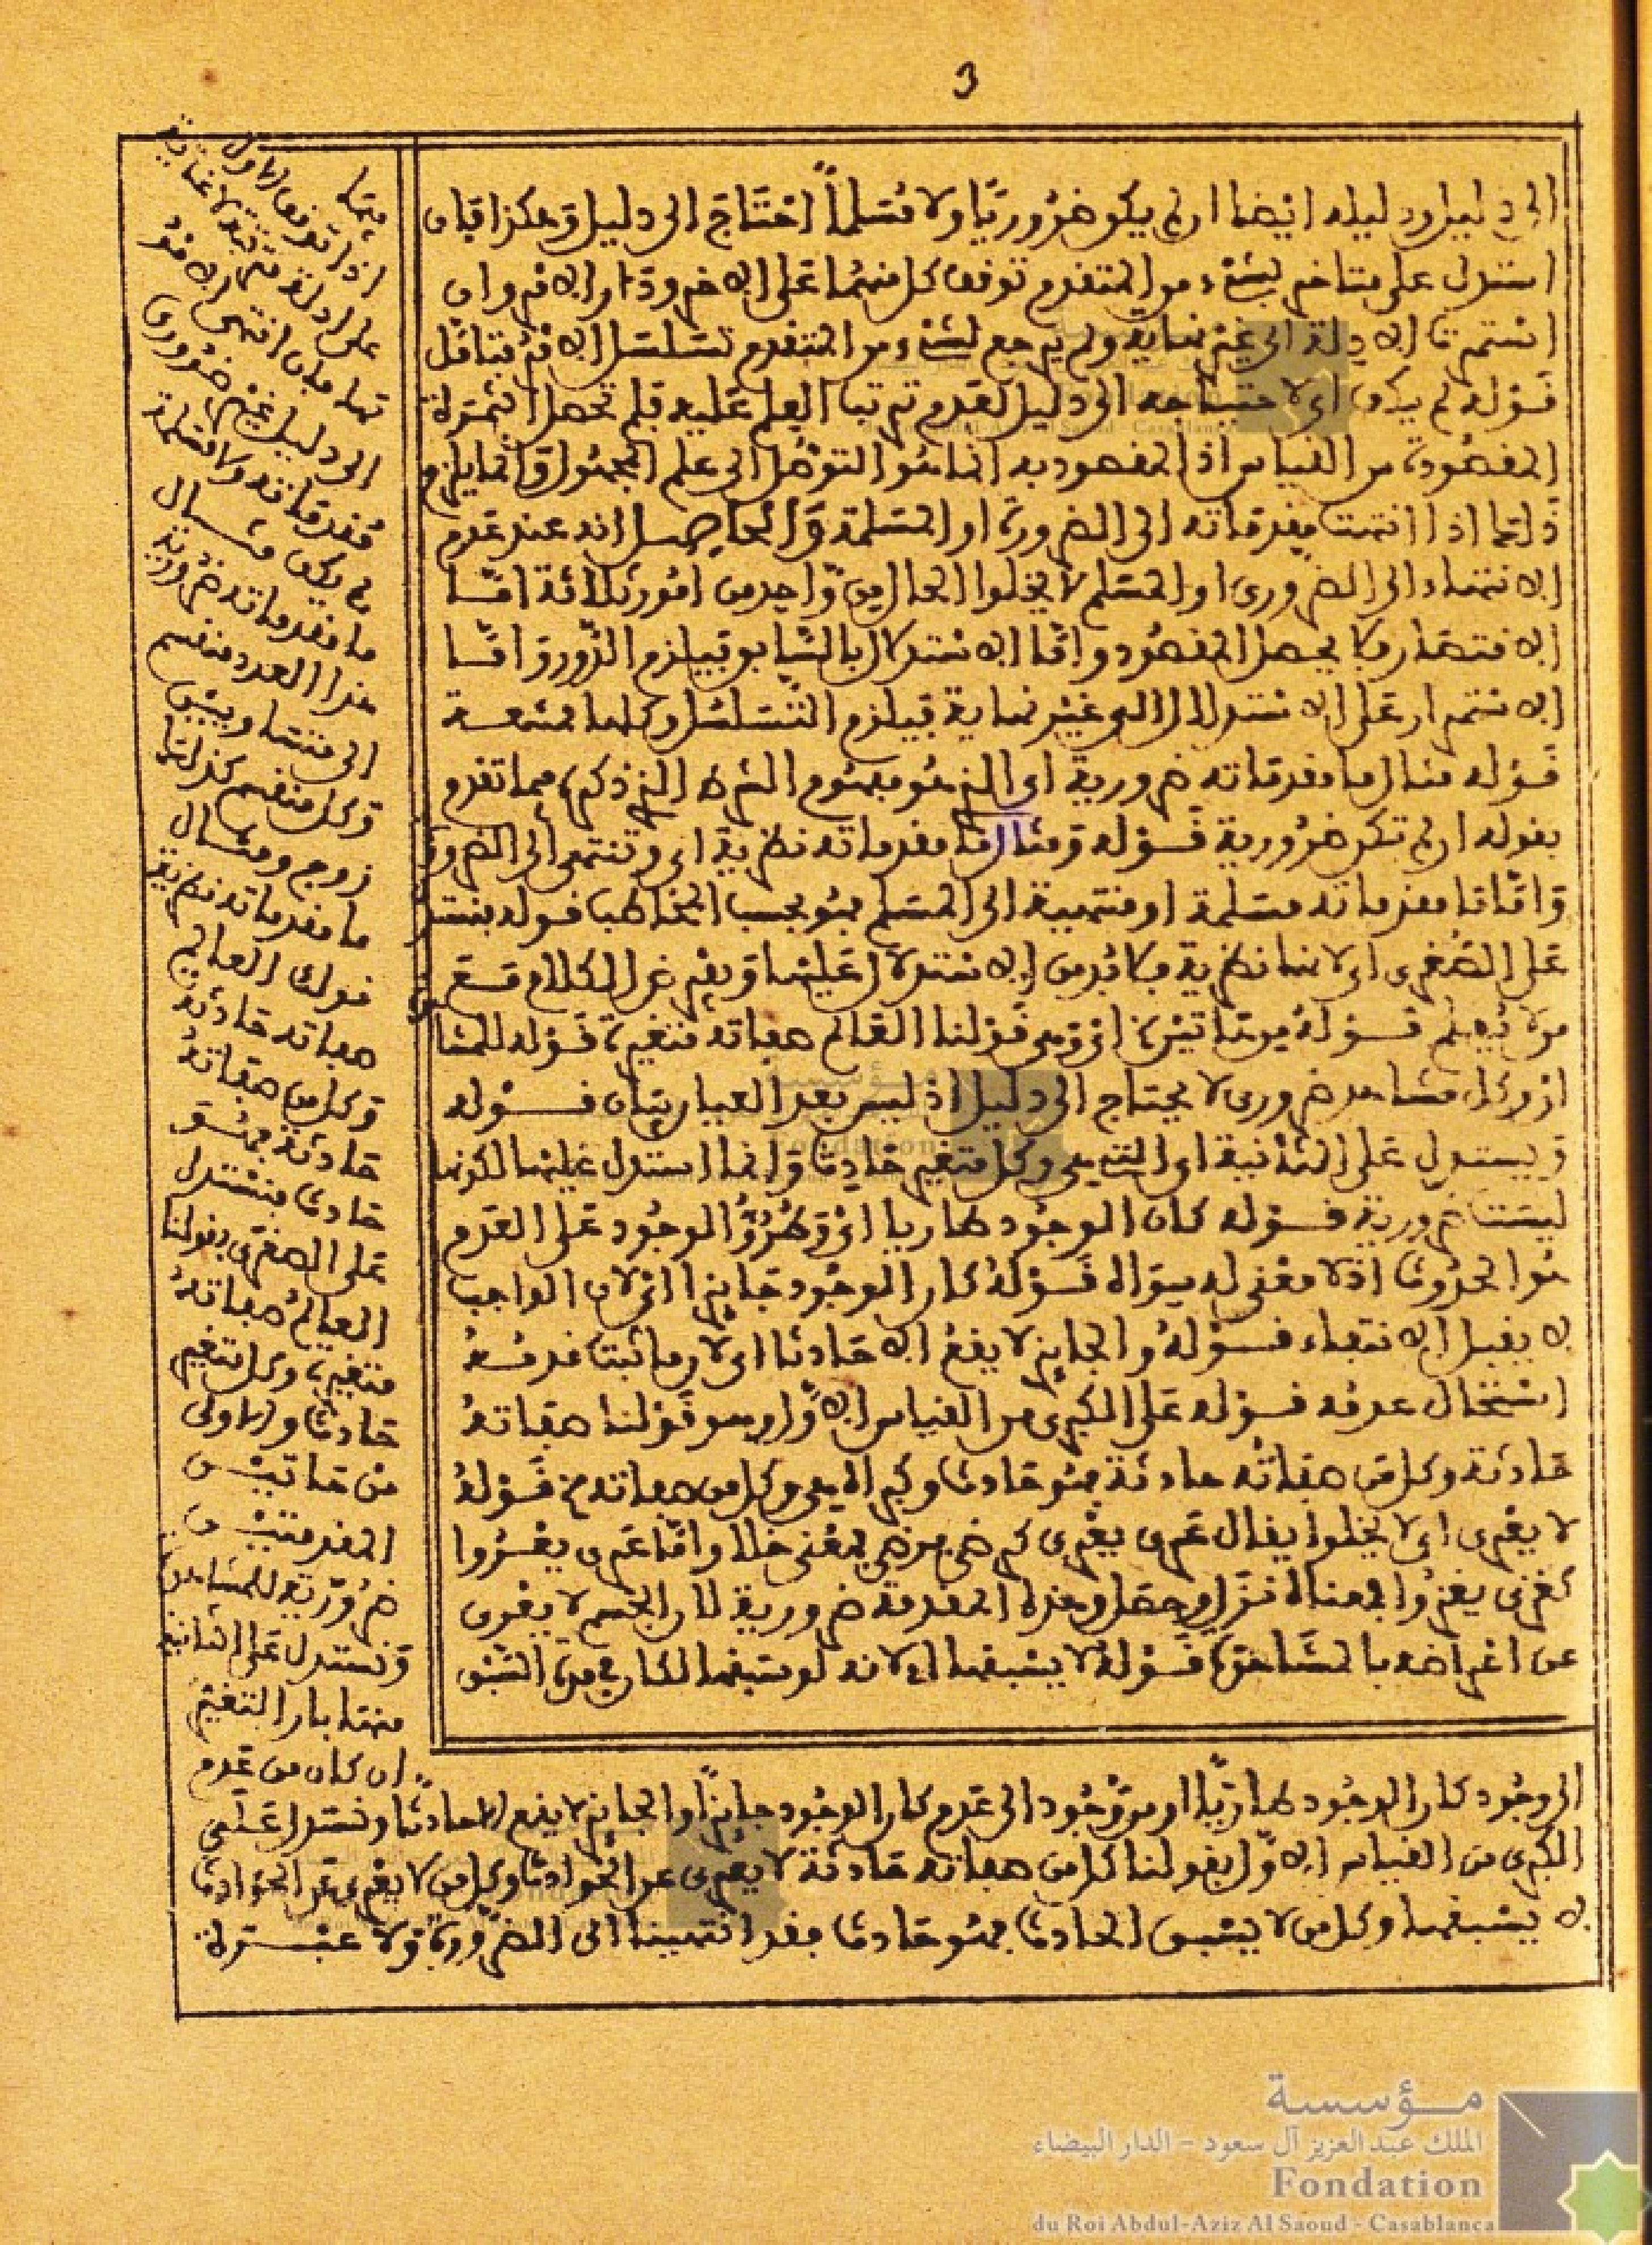 3
الى دليل ودليله ايضا ان لم يكن ضروريّا ولا مُسَلّماً احْتَاجَ الى دليل وَهكذا فإن
استدل على متأخر بشئ من المتقدم توقف كل منهما عَلَى الاخر ودَار الامر وان
استمرت الادلة الى غير نهاية ولم يرجع لشئ من المتقدم تسَلسَل الامر فتأمّل
قَوْله لم يكن اى لاحتياجه الى دليل لعَدم ترتب العلم عَليه فلم تحصل الثمَرة
المقصُودة من القياس اذ المقصود به انما هُو التوصّل الى علم المجهُول وَانما يلزم
ذَلك اذا انتهت مقدماته الى الضرورة او المسَلمة وَالحاصل انه عند عَدم
الانتهاء الى الضرورى او المسَلم لا يخلوا الحال من وّاحد من امُور ثلاثة امّا
الاقتصَار فلا يحصل المقصُود وامّا الاستدلال بالسّابق فيلزم الدّور وَامّا
الاستمرار عَلى الاستدلال الى غيْر نهاية فَيلزم التّسَلسُل وكلها ممتنعة
قَوْله مثال ما مقدمَاته ضرورية اى الذى هُو مفهُوم الشرط الذى ذكره فيما تقدم
بقوله ان لم تكن ضرُورية قَوْله وَمثال مَا مقدماته نظرية اى وتنتهى الى الضرورة
وَامّا مَا مقدماته مسَلمة او منتهية الى المسَلم فهُو بحسب المخاطب قوله فنستدل
عَلى الصّغرى اى لانها نظرية فلا بُد من الاستدلال عَليْها وَيقرر هَذا الكلام مَعَ
من لا يُعلم قَوْلهُ من هَاتيْن اى وَهى قَوْلنا العَالم صفاته متغيرة قَوْله للمشاهدة
اذ وَكل مشاهد ضرورى لا يحتاج الى دليل اذ ليس بعد العيان بيَان قَوْله
وَيستدل عَلى الثانية اى التى هى وكل متغير حَادث وَانما استدل عَليْها لكونها
ليسَت ضرورية قَوْله كان الوجُود طاريا اىْ وَطُرُوُّ الموجُود عَلى العَدم
هُوَ الحدُوث اذْ لا مَعْنى له سِوَاه قَوْلهُ كان الوجُود جَايزا اىْ لان الواجب
لا يقبل الانتفاء قَوْلهُ والجايز لا يقعُ الا حَادثا اى لان ما ثبت قدمُهُ
استحَال عدمه قَوْله عَلى الكبرى من القياس الاوّل وهو قَوْلنا صفاتهُ
حَادثة وكل من صفاتُه حادثة فهُو حَادث وكبراه هى وكل من صفاته الخ قَوْلهُ
لا يعْرى اى لا يخلوا يقال عَرى يعْرى كرضى يرضى بمَعْنى خلا وامّا عَرى يعْرُوا
كغزى يغزُوا فمعناهُ نزَل وحصَل وهذه المقدمة ضرورية لان الجسم لا يعْرى
عن اعْراضه بالمشَاهدَة قَوْلهُ لا يسْبقها اى لانه لو سَبقها لكان فى مدة السّبْق
منها
اذا توقف الاول
على ادلة مترتبة لا غاية
لها فان انتهى الامر
الى دليل غيْر ضرورى
مُقدمَاته ولا مسَلمة
لم يكن مثال
ما مقدماته ضرورية
هذا العدد منقسم
الى متسَاويين
وَكل منقسم كذلك
زوج ومثال
ما مقدماته نظرية
قولك العالم
صفاته حَادثة
وَكل من صفَاتهُ
حَادثة فهُو
حَادث فنسْتدل
عَلى الصغرى بقولنا
العالمُ صفاتهُ
متغيرة وكل متغير
حَادث والاولى
مِن هَاتيْن
المقدمتيْن
ضرُوريّة للمشاهدة
وَنستدل عَلى الثانية
منهَا بان التغيّر
ان كان من عَدم
الى وجُود كان الوجُود طاريًا او من وجُود الى عَدم كان الوجُود جايزًا والجايز لا يقع الا حادثا ونستدل عَلَى
الكبرى من القياس الاوّل بقولنا كل من صفاته حَادثة لا يعْرى عن الحَوادث وكل من لا يعْرى عَن الحوَادث
لا يسْبقها وكل من لا يسْبق الحادث فهُو حَادث فقد انتهينا الى الضّرورة وَلا عبْرَة
مؤسسة
الملك عبد العزيز آل سعود - الدار البيضاء
Fondation
du Roi Abdul-Aziz Al Saoud - Casablanca